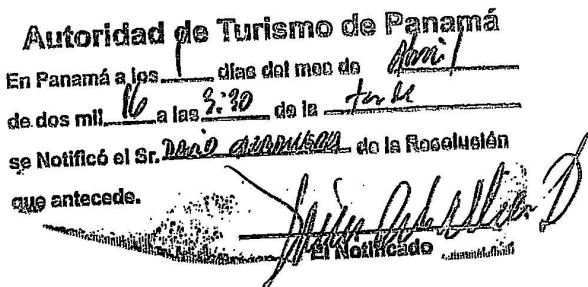 Autoridad de Turismo de Panamá
En Panamá a los 1 días del mes de Abril
de dos mil 16 a las 3:30 de la tarde
se Notificó el Sr. Darío de la Resolución
que antecede.
El Notificado